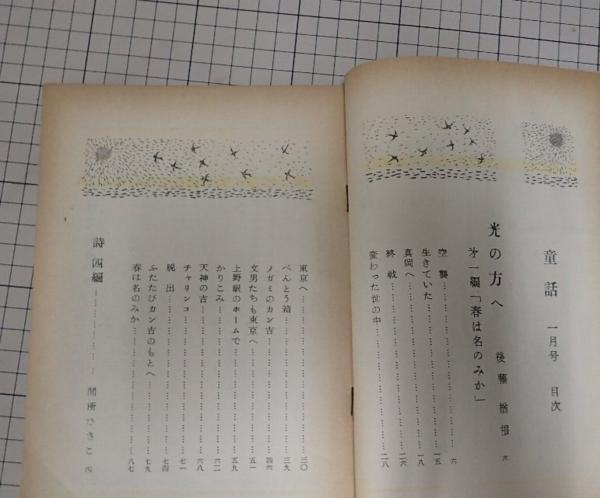 童話 一月号 目次
光の方へ 後藤楢根 六
才一編「春は名のみか」
空襲 六
生きていた 一五
真岡へ 一八
終戦 二六
変わった世の中 二八
東京へ 三〇
べんとう箱 三九
ノガミのカン吉 四六
文男たちも東京へ 五一
上野駅のホームで 五九
かりこみ 六二
天神の吉 六八
チャリンコ 七一
脱出 七四
ふたたびカン吉のもとへ 七九
春は名のみか 八七
詩四編 間所ひさこ 四